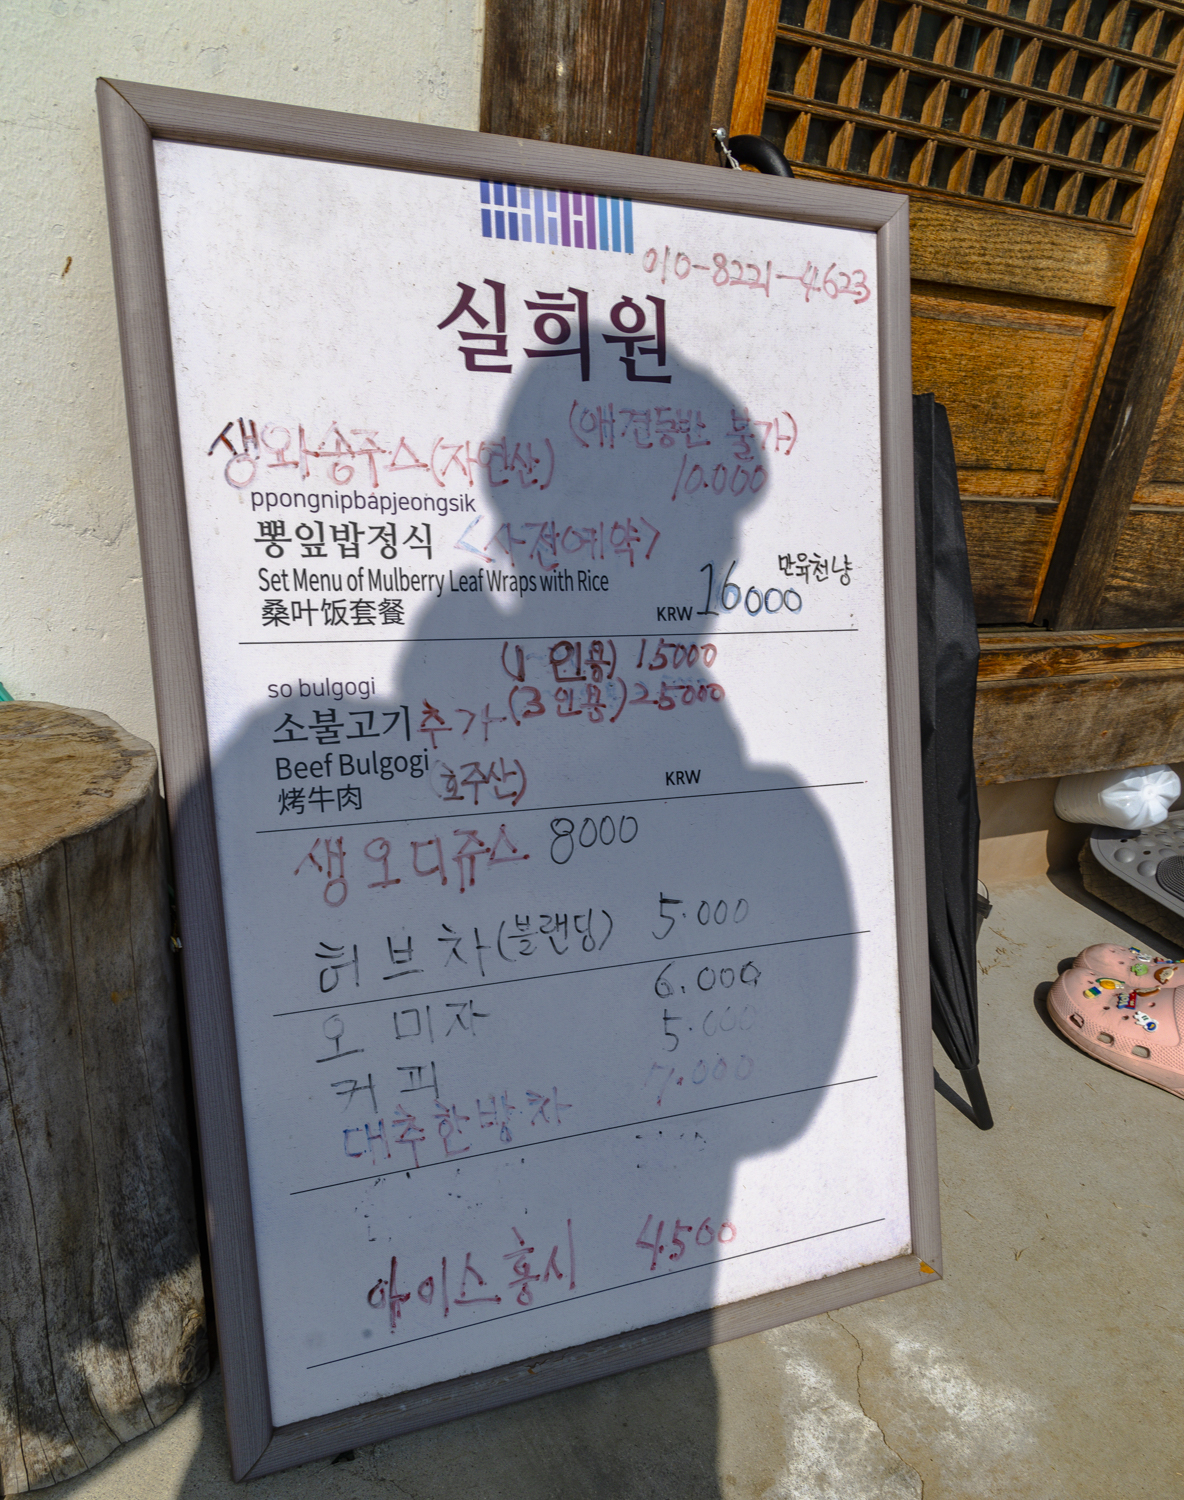 010-8221-4623
실희원
(애견동반 불가)
생와송주스(자연산) 10.000
ppongnipbapjeongsik
뽕잎밥정식 <사전예약>
Set Menu of Mulberry Leaf Wraps with Rice
만육천냥
桑叶饭套餐 KRW 16000
(1인용) 15000
so bulgogi
(3인용) 25000
소불고기추가
Beef Bulgogi (호주산)
烤牛肉 KRW
생오디쥬스 8000
허브차(블랜딩) 5.000
오미자 6.000
커피 5.000
대추한방차 7.000
아이스홍시 4500